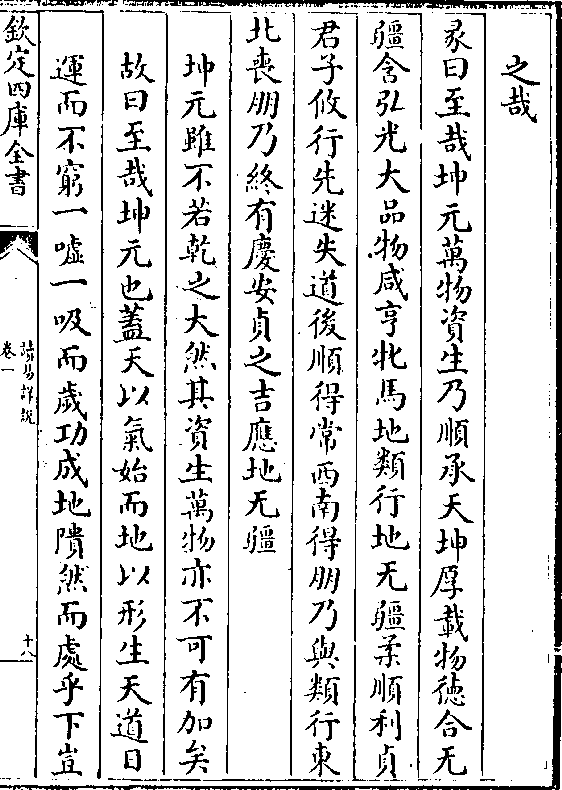 之哉
彖曰至哉坤元萬物資生乃順承天坤厚載物徳合无
疆含弘光大品物咸亨牝馬地類行地无疆柔順利貞
君子攸行先迷失道後順得常西南得朋乃與類行東
北喪朋乃終有慶安貞之吉應地无疆
坤元雖不若乾之大然其資生萬物亦不可有加矣
故曰至哉坤元也蓋天以氣始而地以形生天道日
運而不窮一嘘一吸而歲功成地隤然而處乎下豈
欽定四庫全書
讀易詳說
卷一
十八